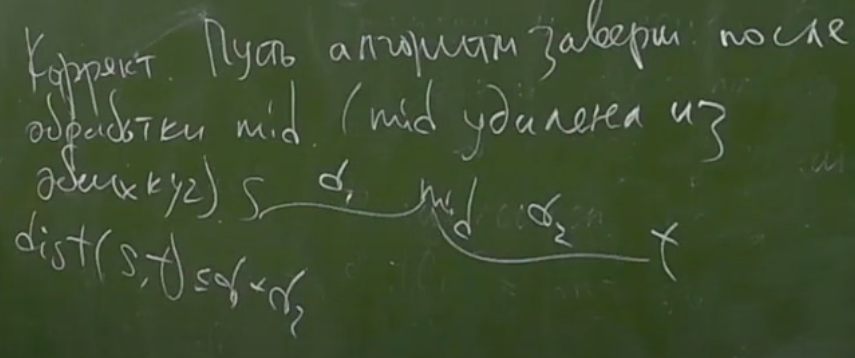 Коррект. Пусть алгоритм заверш. после
обработки mid. (mid удалена из
обеих куч) s d₁ mid d₂ t
dist(s,t) ≤ d₁ + d₂